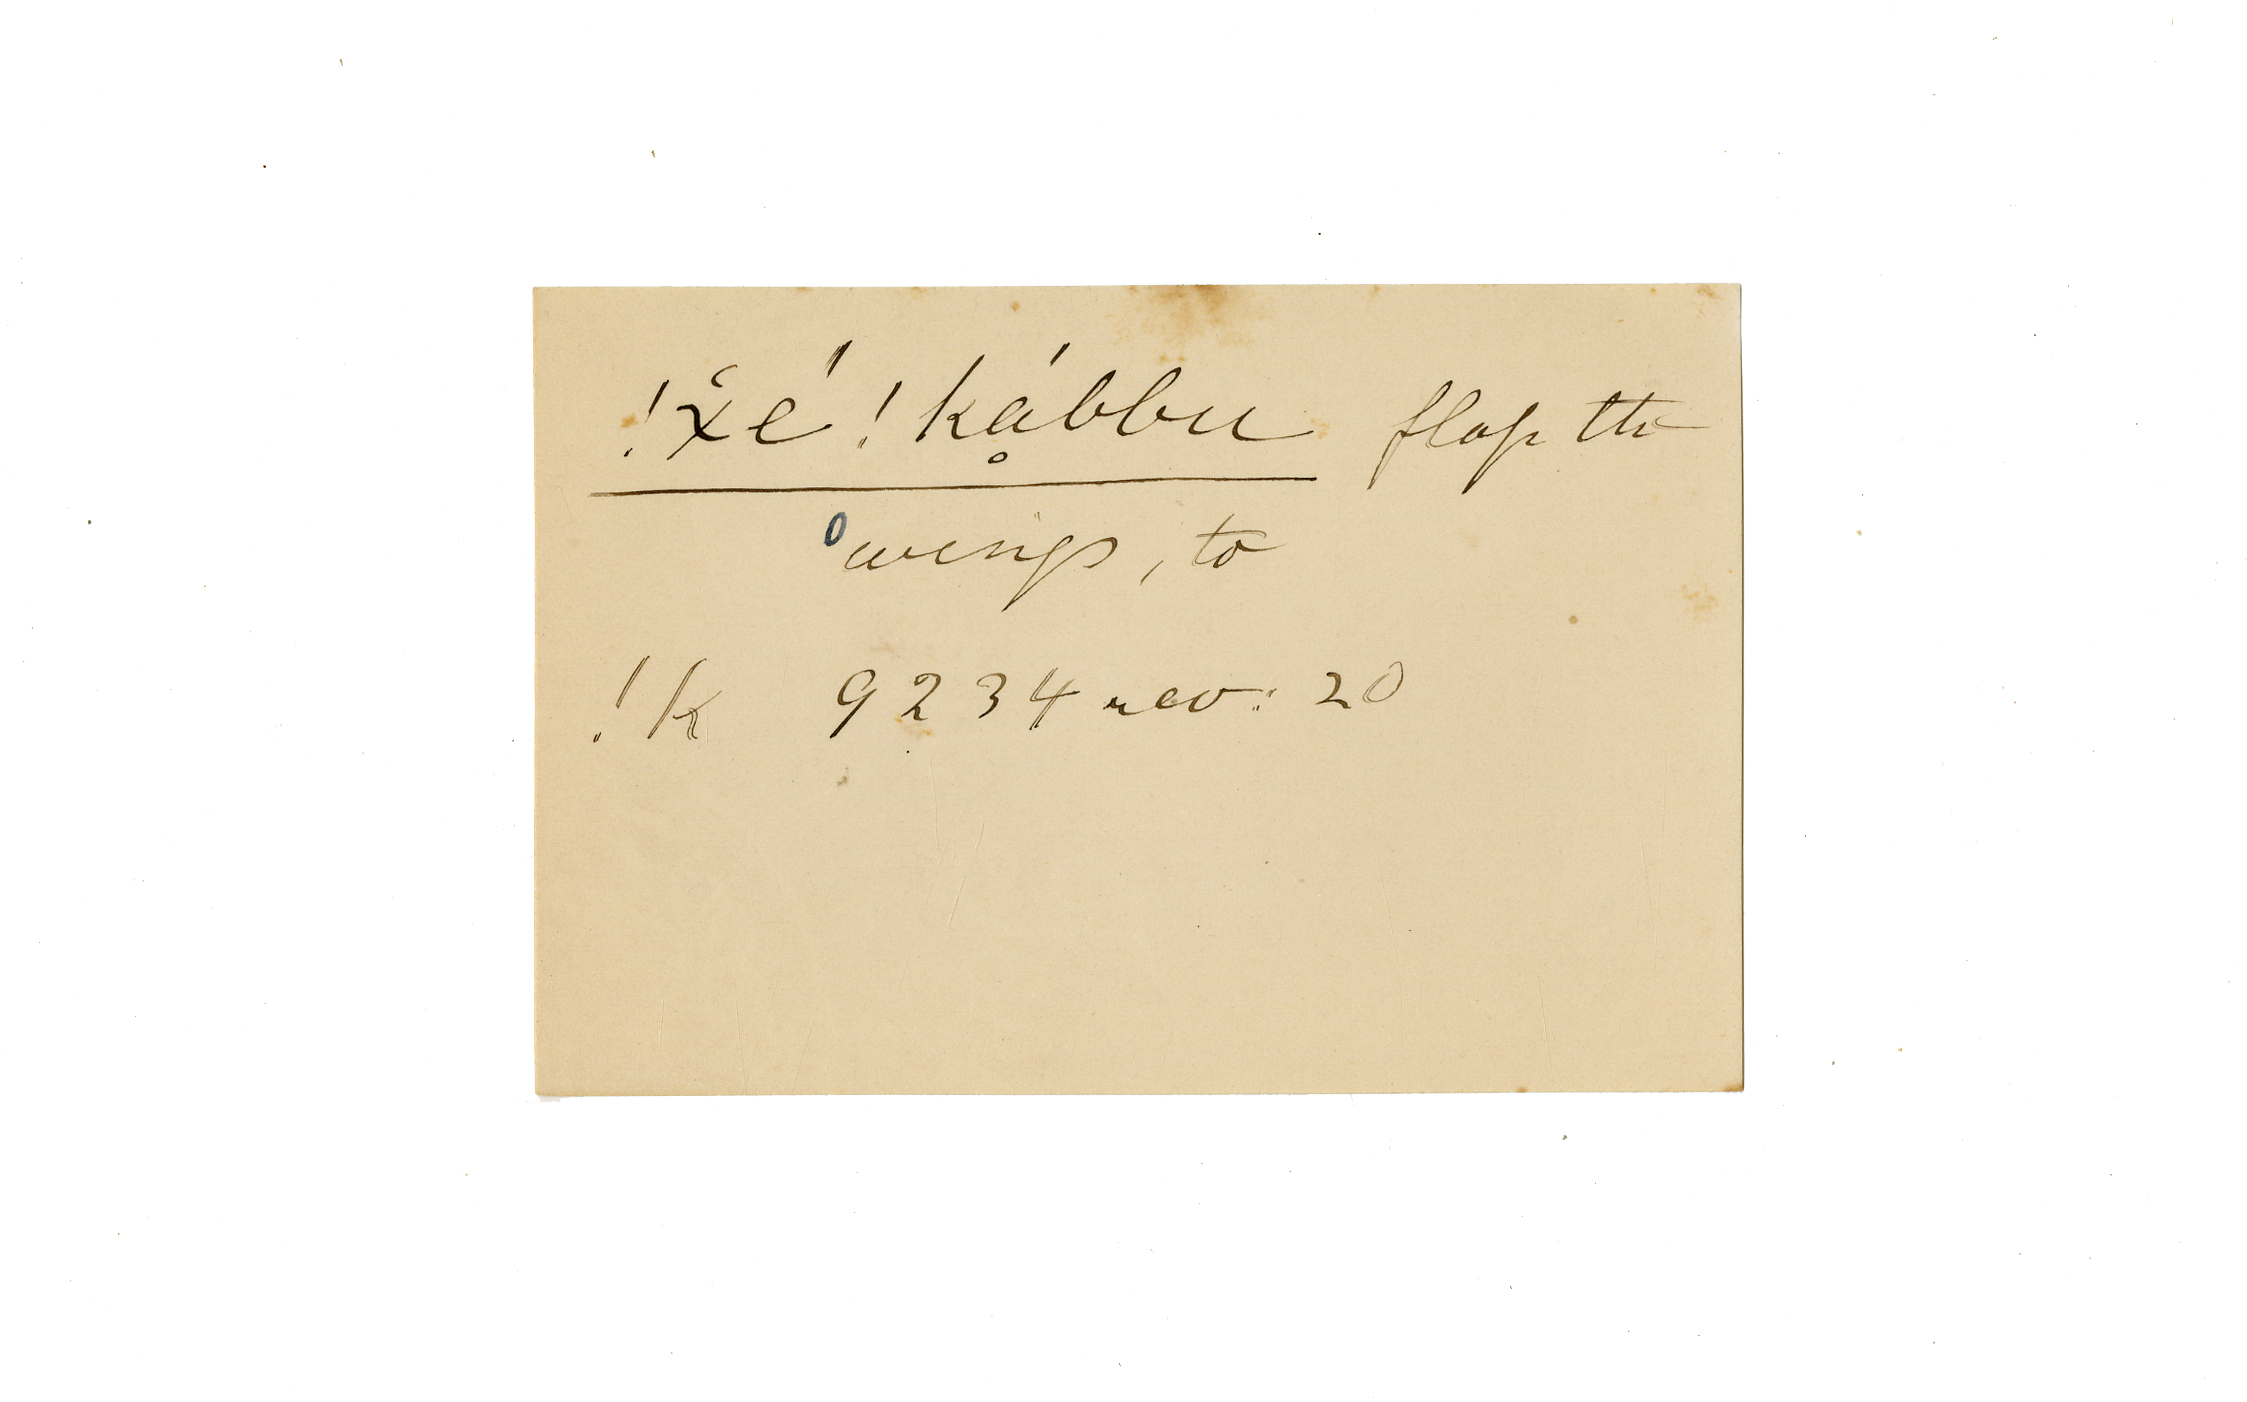 !x̔é !kạ́bbu flap the
wings, to
!k 9234 rev: 20